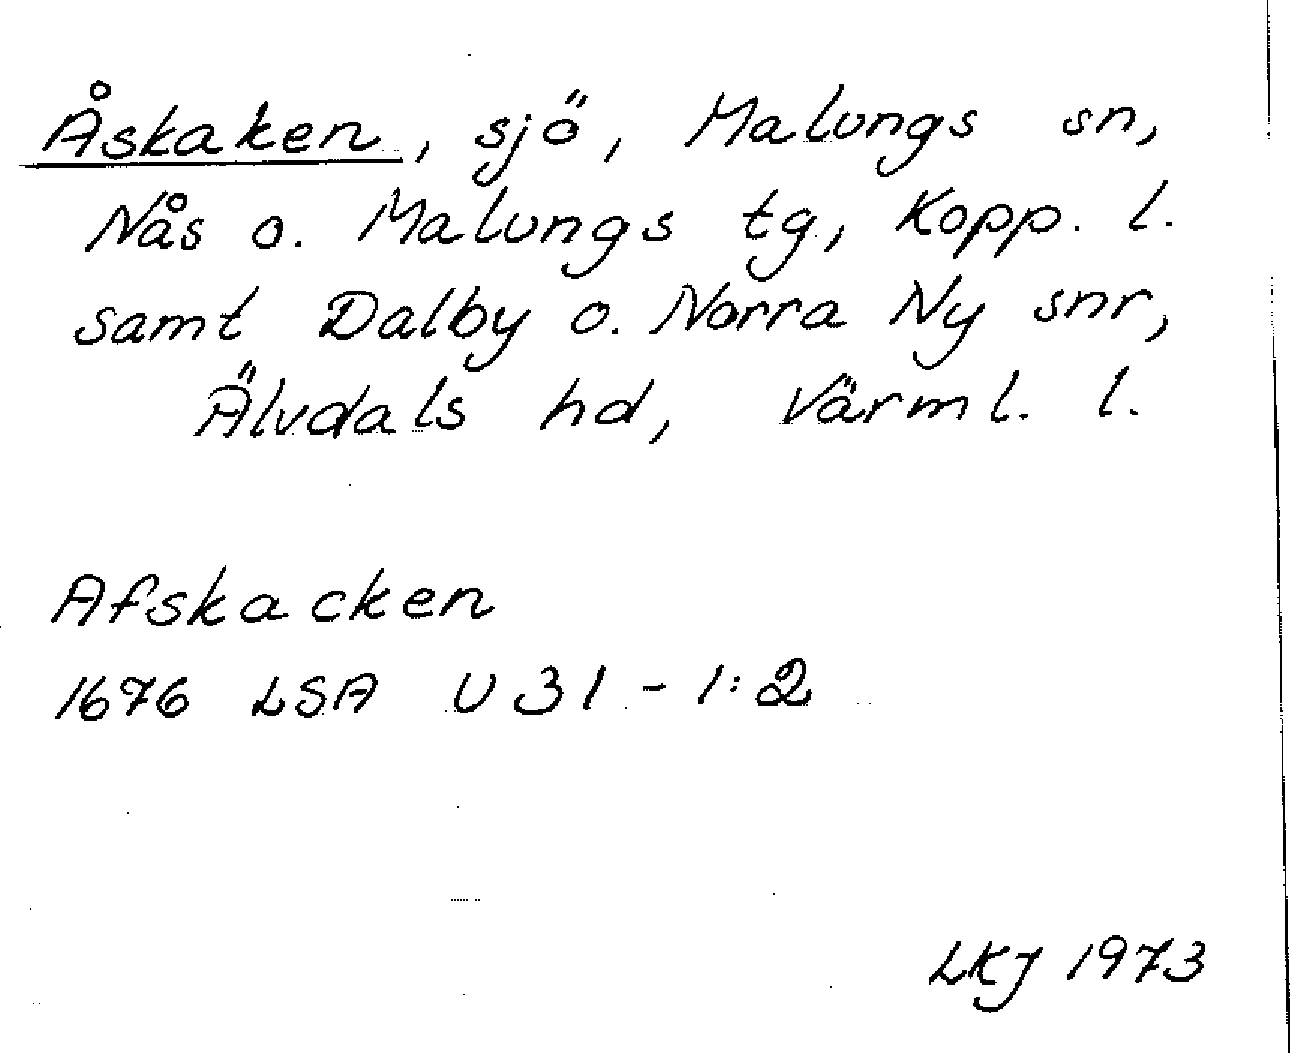 Åskaken, sjö, Malungs sn,
Nås o. Malungs tg, Kopp. l.
samt Dalby o. Norra Ny snr,
Älvdals hd, Värml. l.
Afskacken
1676 LSA U 31 - 1:2
LKJ 1973